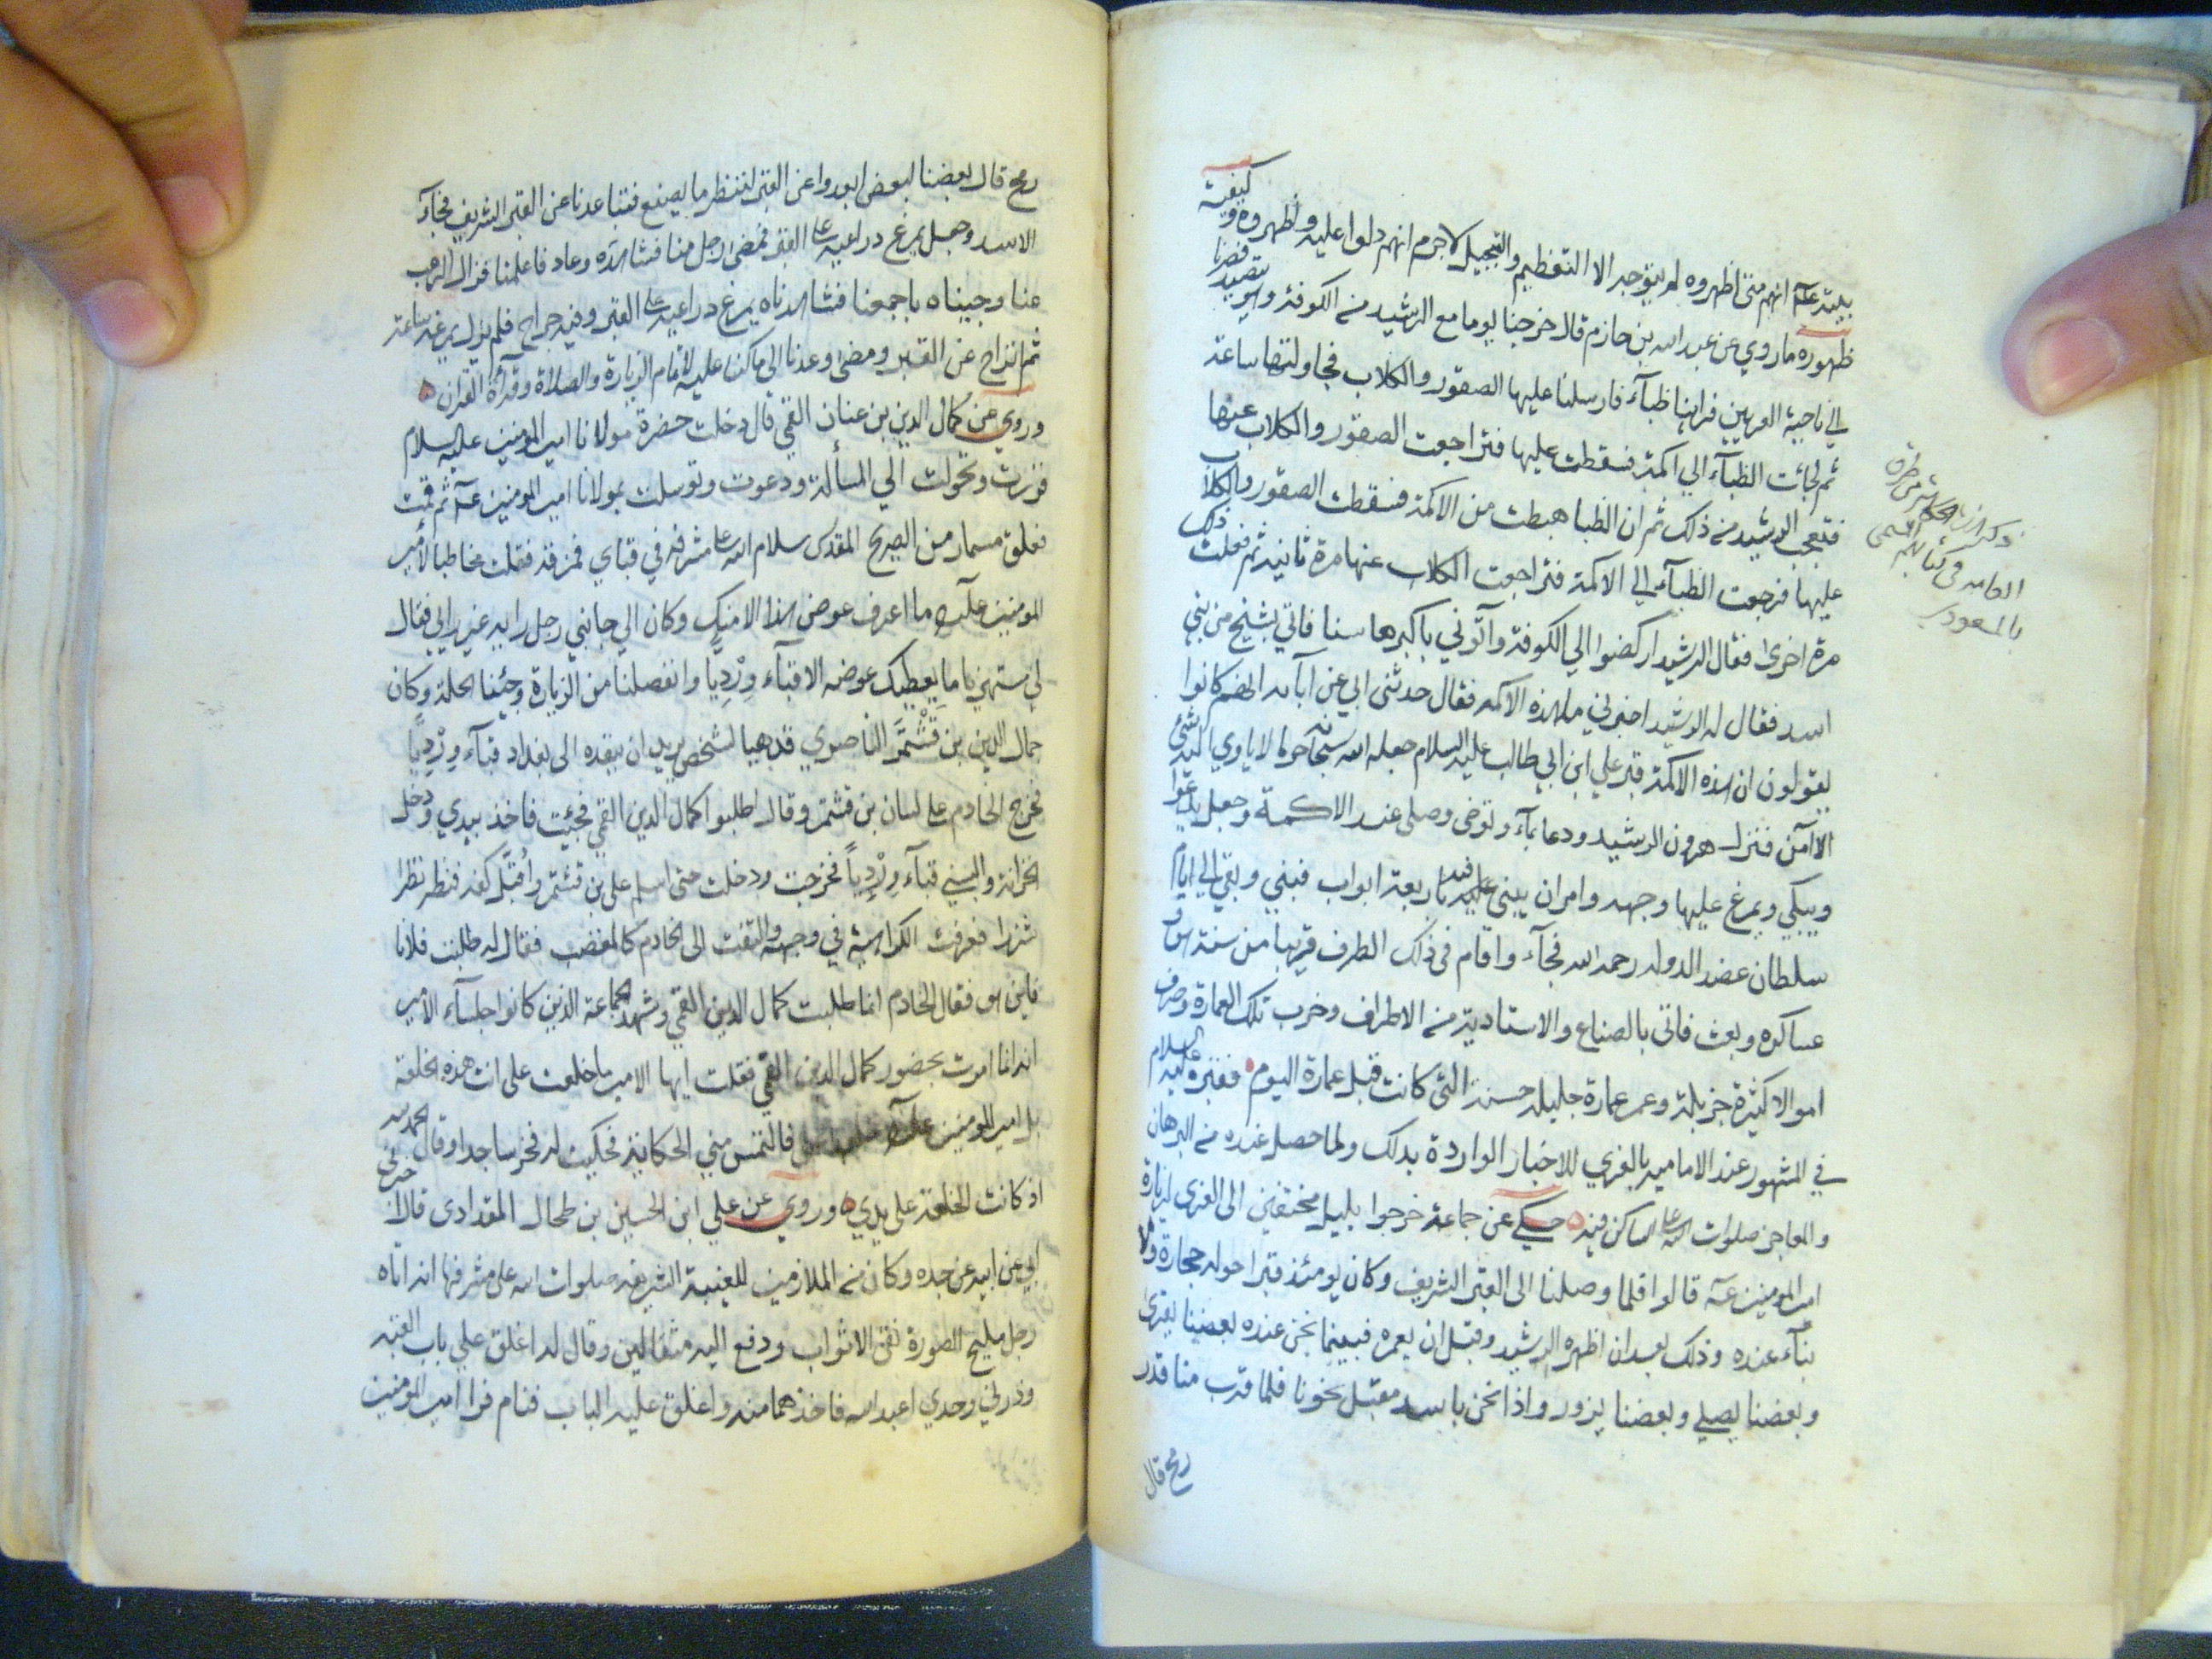 بيته عم انهم متى اظهروه لم يتوجه الا التعظيم والتبجيل لاجرم انهم دلوا عليه واظهروه وكيفية
ظهوره ما روي عن عبد الله بن حازم قال خرجنا يوما مع الرشيد من الكوفة وهو يتصيد فصرنا
الي ناحية الغريين فراينا ظبآء فارسلنا عليها الصقور والكلاب فجاولتها ساعة
ثم لجائت الظبآء الي اكمة فسقطت عليها فتراجعت الصقور والكلاب عنها
فتعجب الرشيد من ذلك ثم ان الظبا هبطت من الاكمة فسقطت الصقور والكلاب
عليها فرجعت الظبآء الي الاكمة فتراجعت الكلاب عنها مرة ثانية ثم فعلت ذلك
مرة اخرى فقال الرشيد اركضوا الي الكوفة وآتوني باكبرها سنا فاتي بشيخ من بني
اسد فقال له الرشيد اخبرني ما هذه الاكمه فقال حدثني ابي عن آبائه انهم كانوا
يقولون ان هذه الاكمة قبر علي ابن ابي طالب عليه السلام جعله الله سبحانه حرما لا ياوي اليه شئ
الا آمن فنزل هرون الرشيد ودعا بمآء وتوضى وصلى عند الاكمة وجعل يدعوا
ويبكي ويمرغ عليها وجهه وامر ان يبنى عليه قبه باربعة ابواب فبني وبقي الي ايام
سلطان عضد الدوله رحمه الله فجآء واقام في ذلك الطرف قريبا من سنة هو و
عساكره وبعث فاتى بالصناع والاستادية من الاطراف وخرب تلك العمارة وصرف
اموالا كثيرة جزيلة وعمر عمارة جليله حسنة التي كانت قبل عمارة اليوم فقبره عليه السلام
في المشهور عند الاماميه بالغري للاخبار الواردة بذلك ولما حصل عنده من البرهان
والمعاجز صلوات الله على الساكن فيه حكي عن جماعة خرجوا بليل مختفين الى الغرى لزيارة
امير المومنين عم قالوا فلما وصلنا الى القبر الشريف وكان يومئذ قبرا حوله حجارة ولا
بنآء عنده وذلك بعد ان اظهره الرشيد وقبل ان يعمره فبينما نحن عنده بعضنا يقرى
وبعضنا يصلي وبعضنا يزور واذا نحن باسد مقبل نحونا فلما قرب منا قدر
رمح قال
العامه في كتابه
بالمسعودي
رمح قال بعضنا لبعض ابعدوا عن القبر لننظر ما يصنع فتباعدنا عن القبر الشريف فجآء
الاسد وجعل يمرغ دراعيه على القبر فمضى رجل منا فشاهده وعاد فاعلمنا فزال الرعب
عنا وجيناه باجمعنا فشاهدناه يمرغ دراعيه على القبر وفيه جراح فلم يزل يمرغه ساعة
ثم انزاح عن القبر ومضى وعدنا الى ما كنا عليه لاتمام الزيارة والصلاة وقرآة القران
وروي عن كمال الدين بن عنان القمي قال دخلت حضرة مولانا امير المومنين عليه السلام
فزرت وتحولت الي المسألة ودعوت وتوسلت بمولانا امير المومنين عم ثم قمت
فعلق مسمار من الضريح المقدس سلام الله على مشرفه في قباي فمزقه فقلت مخاطبا لأمير
المومنين عم ما اعرف عوض هذا الا منك وكان الي جانبي رجل رايه غير رايي فقال
لي مستهزيا ما يعطيك عوضه الا قبآء ورْدِيّا وانفصلنا من الزيارة وجئنا الحلة وكان
جمال الدين بن قشتمر الناصري قد هيا لشخص يريد ان ينفذه الى بغداد قبآء ورْدِيّا
فخرج الخادم على لسان بن قشتمر وقال اطلبوا كمال الدين القمي فجئيت فاخذ بيدي ودخل
الخزانة والبسني قبآء ورْدِيّا فخرجت ودخلت حتى اسلم على بن قشتمر واقبّل كفه فنظر نظرا
شزرا فعرفت الكراهية في وجهه والتفت الى الخادم كالمغضب فقال له طلبت فلانا
فاين هو فقال الخادم انما طلبت كمال الدين القمي وشهد الجماعة الذين كانوا جلسآء الأمير
انه انما امرت بحضور كمال الدين القمي فقلت ايها الامير ما خلعت على انت هذه الخلعة
بل امير المومنين عم فالتمس مني الحكاية فحكيت له فخر ساجدا وقال الحمد لله
اذ كانت الخلعة على يدي وروي عن علي ابن الحسين بن طحال المقدادى قال اخبرني
ابي عن ابيه عن جده وكان من الملازمين للغيبة الشريفه صلوات الله على مشرفها انه اتاه
رجل مليح الصورة نقي الاثواب ودفع اليه مثقالين وقال له اغلق علي باب القبه
وذرني وحدي اعبد الله فاخذهما منه واغلق عليه الباب فنام فرا امير المومنين